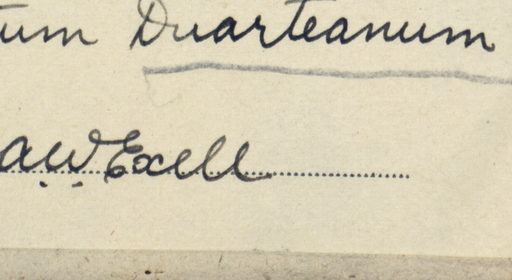 um Duarteanum
AW Exell